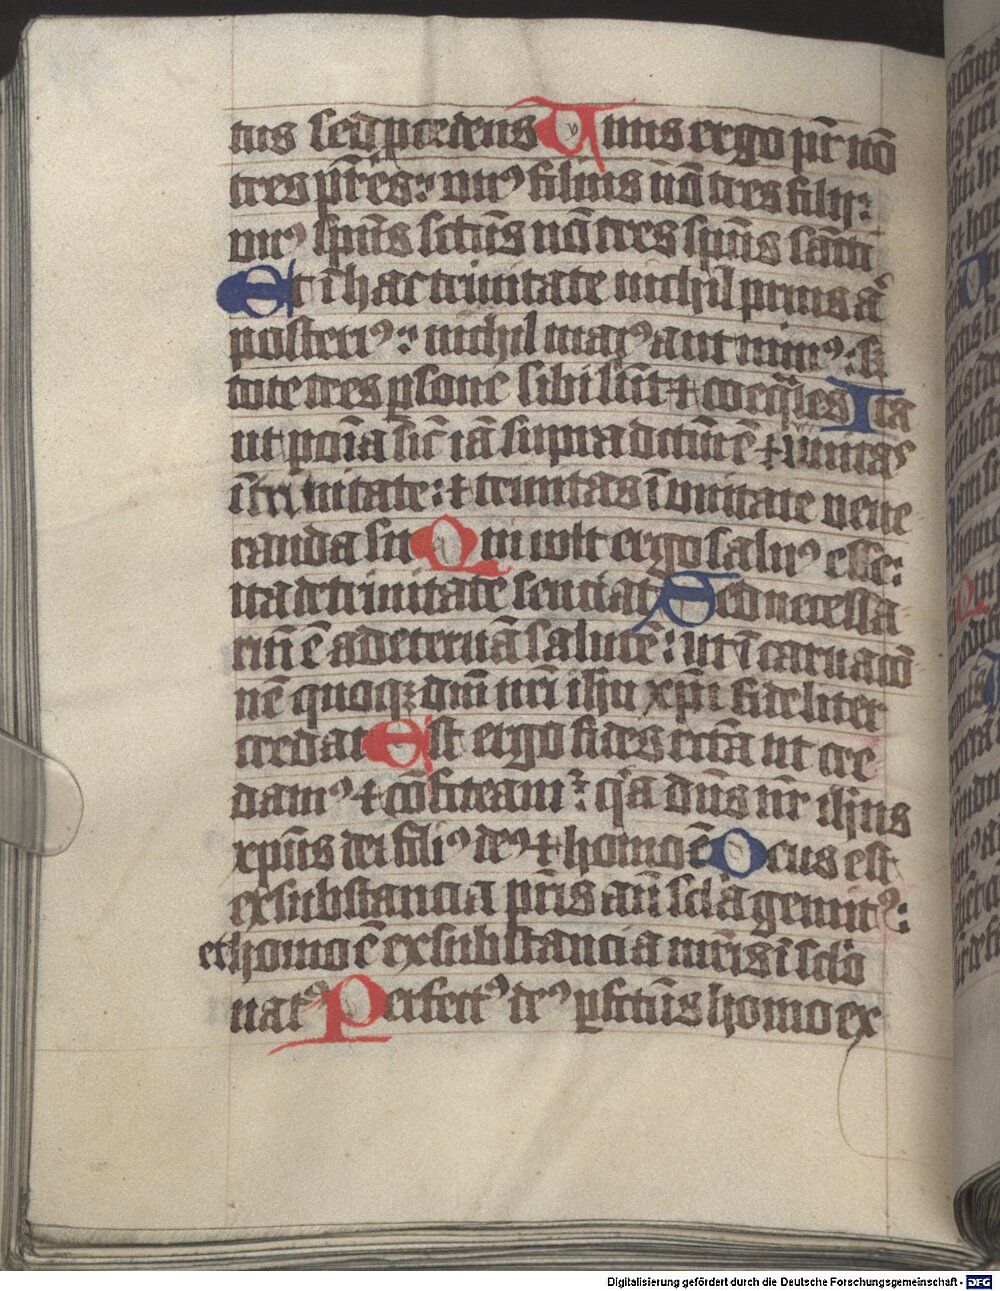 tus sed p̱cedens Unus ergo pr̄ nō
tres pr̄es: unꝰ filius nō tres filij:
unꝰ spūs sctūs nō tres spūs sāncti
Et ī hac trinitate nichil prius aū
posteriꝰ: nichil maiꝰ aut minꝰ: Sꝫ
tote tres ꝑsone sibi sūt ⁊ coeq̄les Ita
ut ꝑ oīa sic̄ iā supra dictūm ē ⁊ unitas
ī trinitate: ⁊ trinitas ī unitate vene
randa sit Qui wlt ergo saluꝰ esse:
ita de trinitate senciat Sed necessa
riū ē ad eternā salutē: ut ī carnacō
nē quoqꝫ dn̄i nr̄i ihu xp̄i fideliter
credat Est ergo fides rctā ut cre
damꝰ ⁊ cōfiteam̄: q̇a dn̄s nr̄ ihus
xp̄us dei filiꝰ deꝰ ⁊ homo ē Deus est
ex substancia pr̄is an̄ scl̄a genitꝰ:
et homo ē ex substancia mr̄is ī sclō
natꝰ Perfectꝰ deꝰ ꝑfctūs homo ex
Digitalisierung gefördert durch die Deutsche Forschungsgemeinschaft - DFG